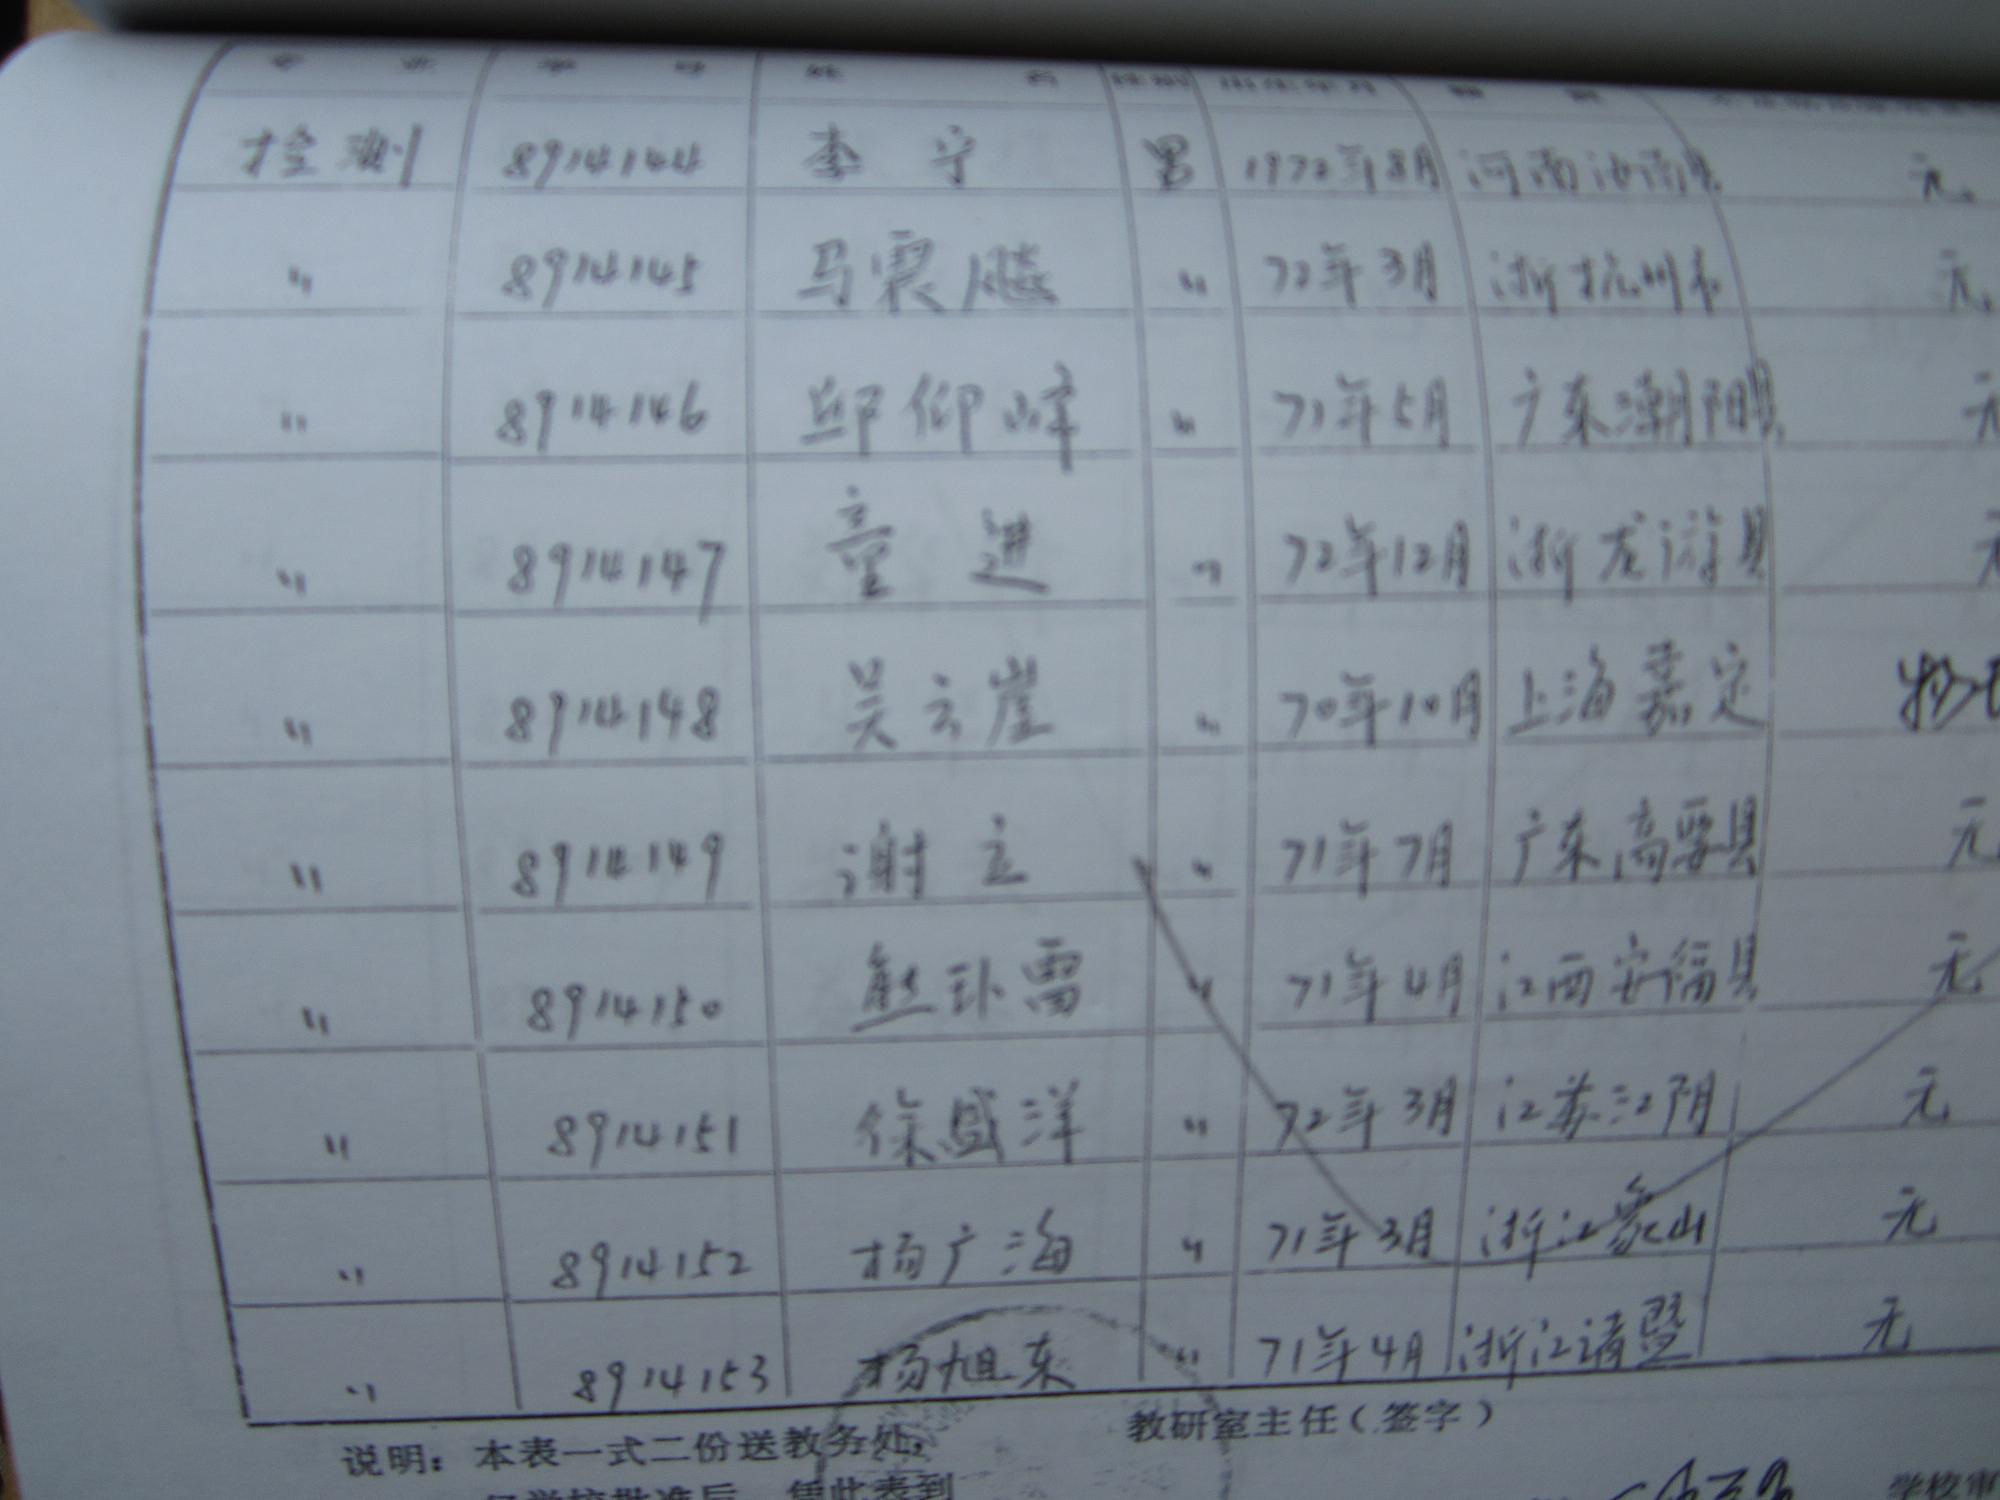 专 业 学 号 姓 名 性别 出生年月 籍 贯
检测 8914144 李宁 男 1972年8月 河南
〃 8914145 马震 〃 72年3月 浙杭州市
〃 8914146 邱仰峰 〃 71年5月 广东潮阳县 无
〃 8914147 童进 〃 72年12月 浙龙游县 无
〃 8914148 吴云崖 〃 70年10月 上海嘉定
〃 8914149 谢立 〃 71年7月 广东高要县 无
〃 8914150 熊卦雷 〃 71年4月 江西安福县 无
〃 8914151 徐盛洋 〃 72年3月 江苏江阴 无
〃 8914152 杨广海 〃 71年3月 浙江象山 无
〃 8914153 杨旭东 〃 71年4月 浙江诸暨 无
说明：本表一式二份送教务处， 教研室主任（签字）
经学校批准后，凭此表到 学校